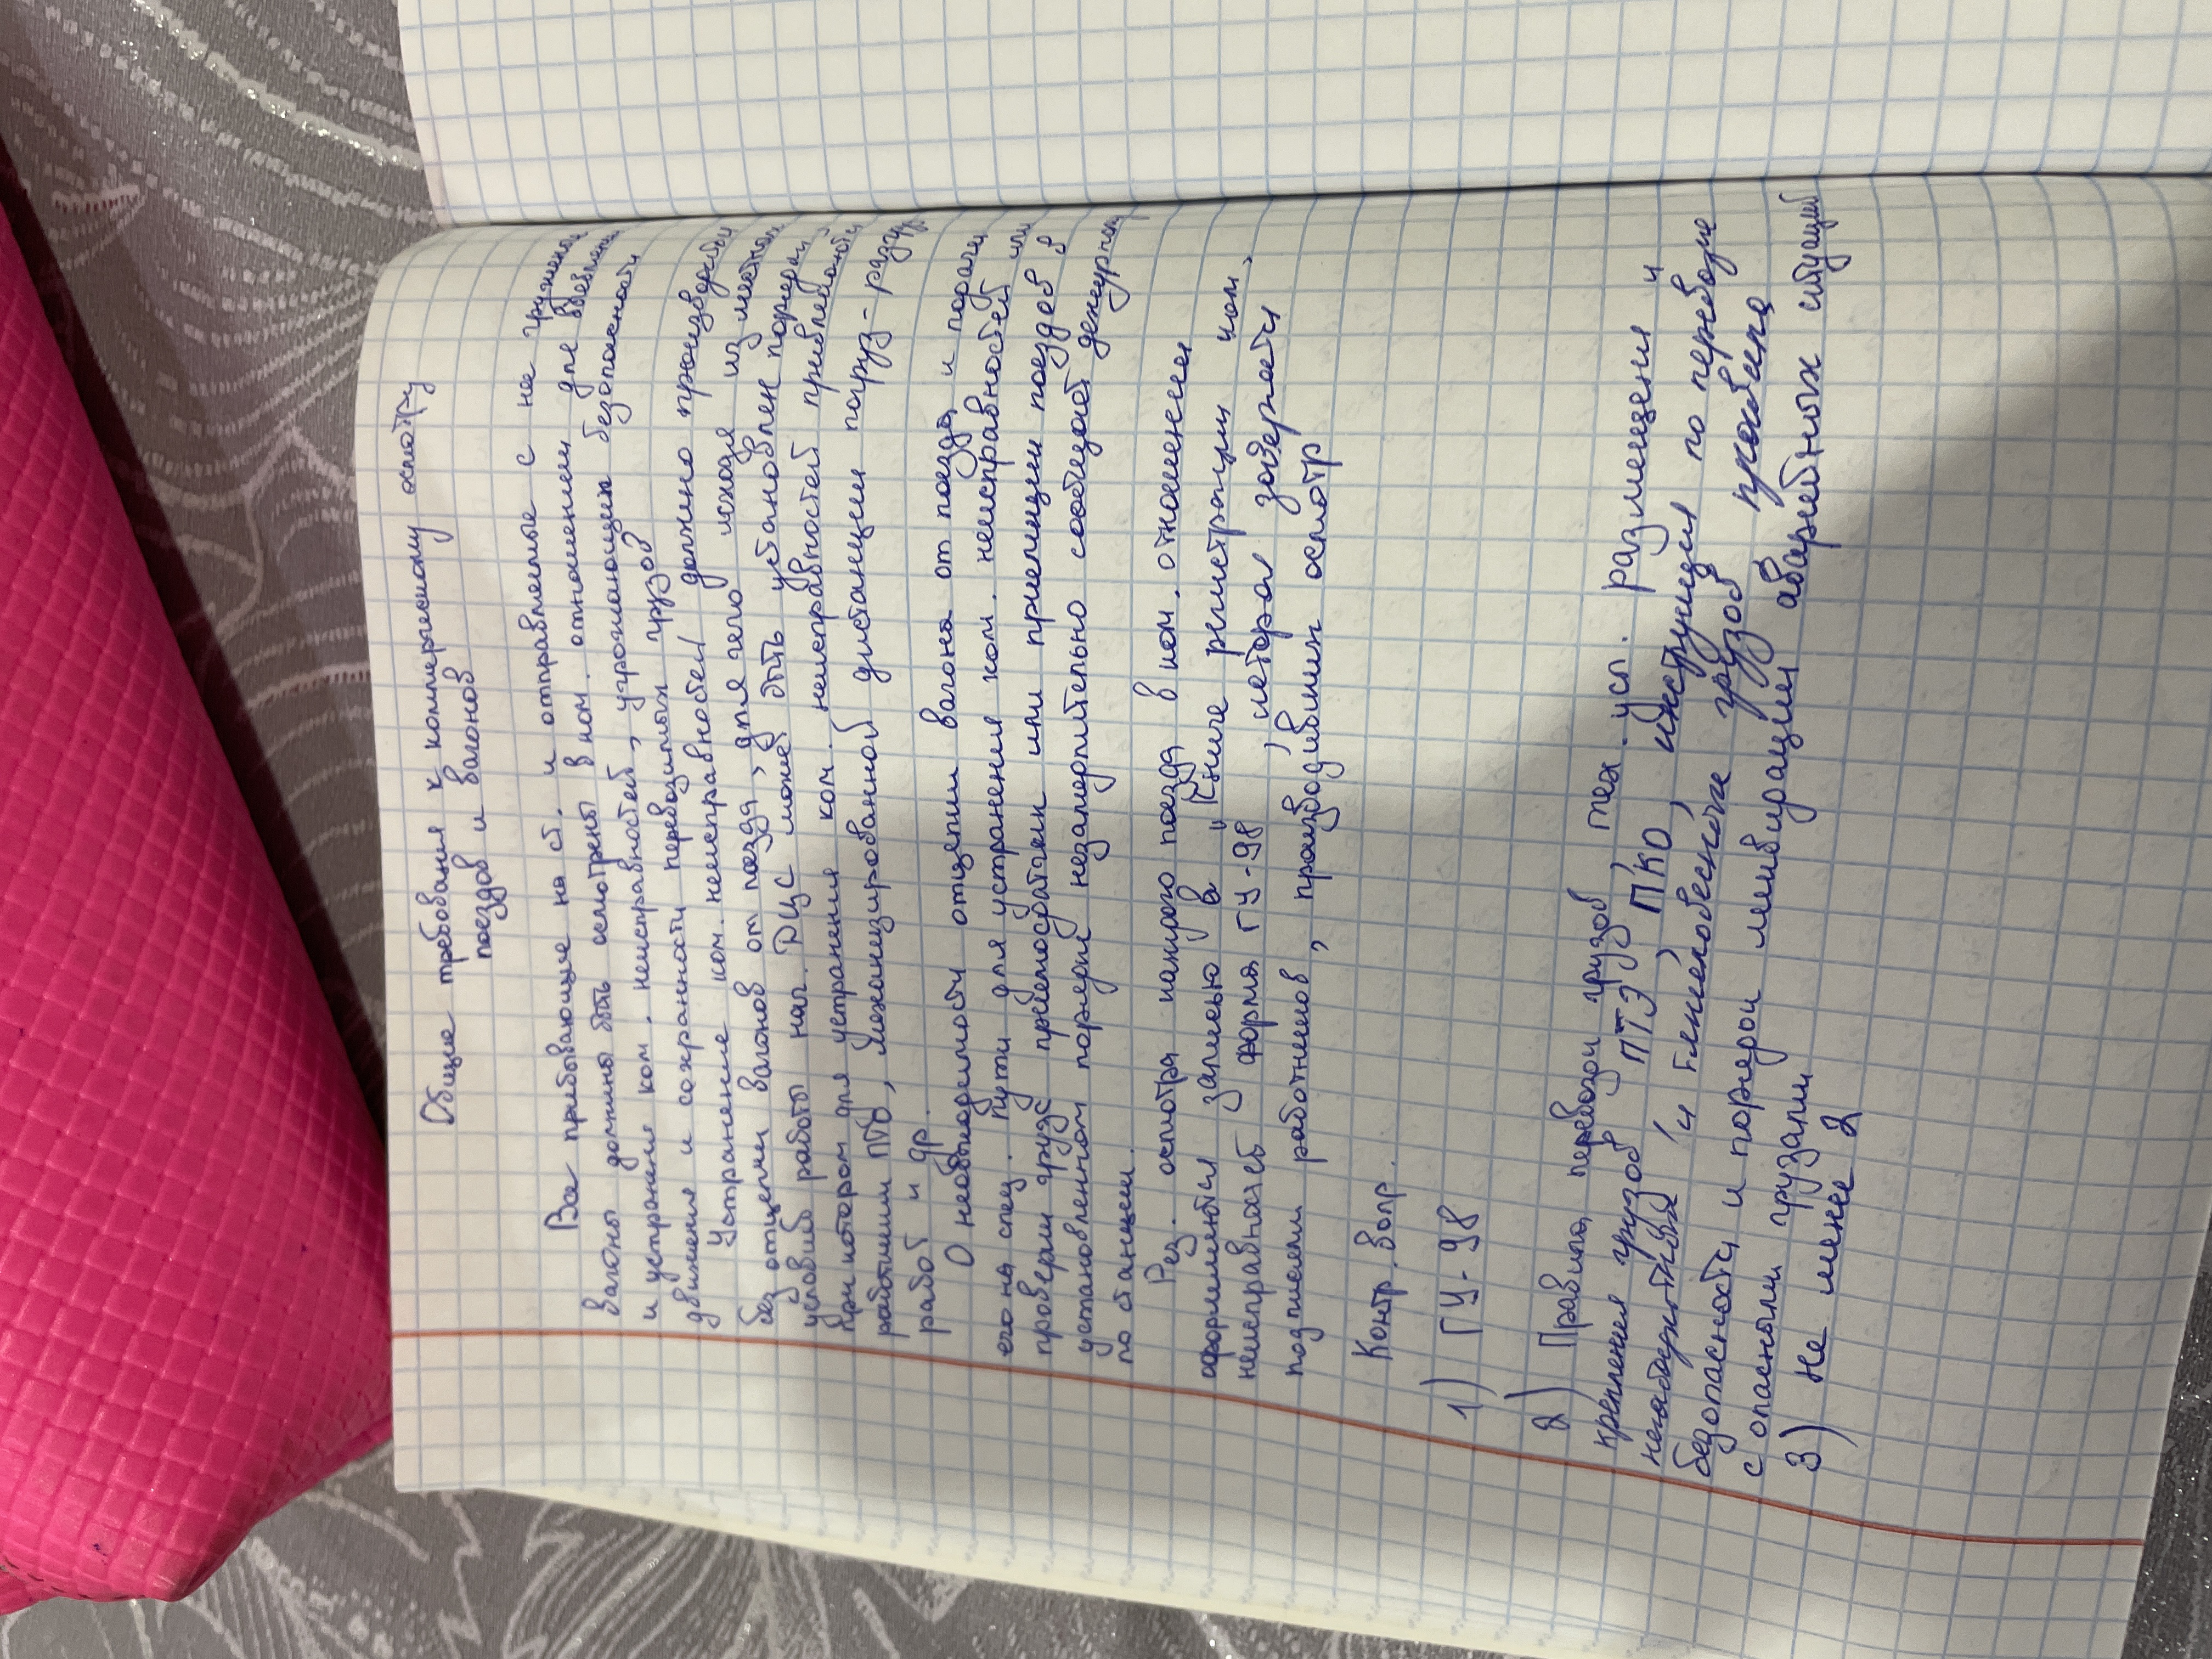 Общие требования к коммерческому осмотру
поездов и вагонов
Все прибывающие на ст. и отправляемые с нее груженые
вагоны должны быть осмотрены в ком. отношении для выявления
и устранения ком. неисправностей, угрожающих безопасности
движения и сохранности перевозимых грузов
Устранение ком. неисправностей должно производиться
без отцепки вагонов от поезда, для чего исходя из местных
условий работы нач. РЦС может быть установлен порядок
при котором для устранения ком. неисправностей привлекаются
работники ПТО, механизированной дистанции погруз-разгр
работ и др.
О необходимости отцепки вагона от поезда и подачи
его на спец. пути для устранения ком. неисправностей или
проверки груза приемосдатчик или приемщик поездов в
установленном порядке незамедлительно сообщает дежурному
по станции.
Рез. осмотра каждого поезда в ком. отношении
оформляются записью в "Книге регистрации ком.
неисправностей форма ГУ-98, которая заверяется
подписями работников, производивших осмотр
Контр. вопр.
1) ГУ-98
2) Правила перевозки грузов, тех. усл. размещения и
крепления грузов ПТЭ, ПКО, инструкция по перевозке
негабаритных и тяжеловесных грузов правила
безопасности и порядок ликвидации аварийных ситуаций
с опасными грузами
3) Не менее 2